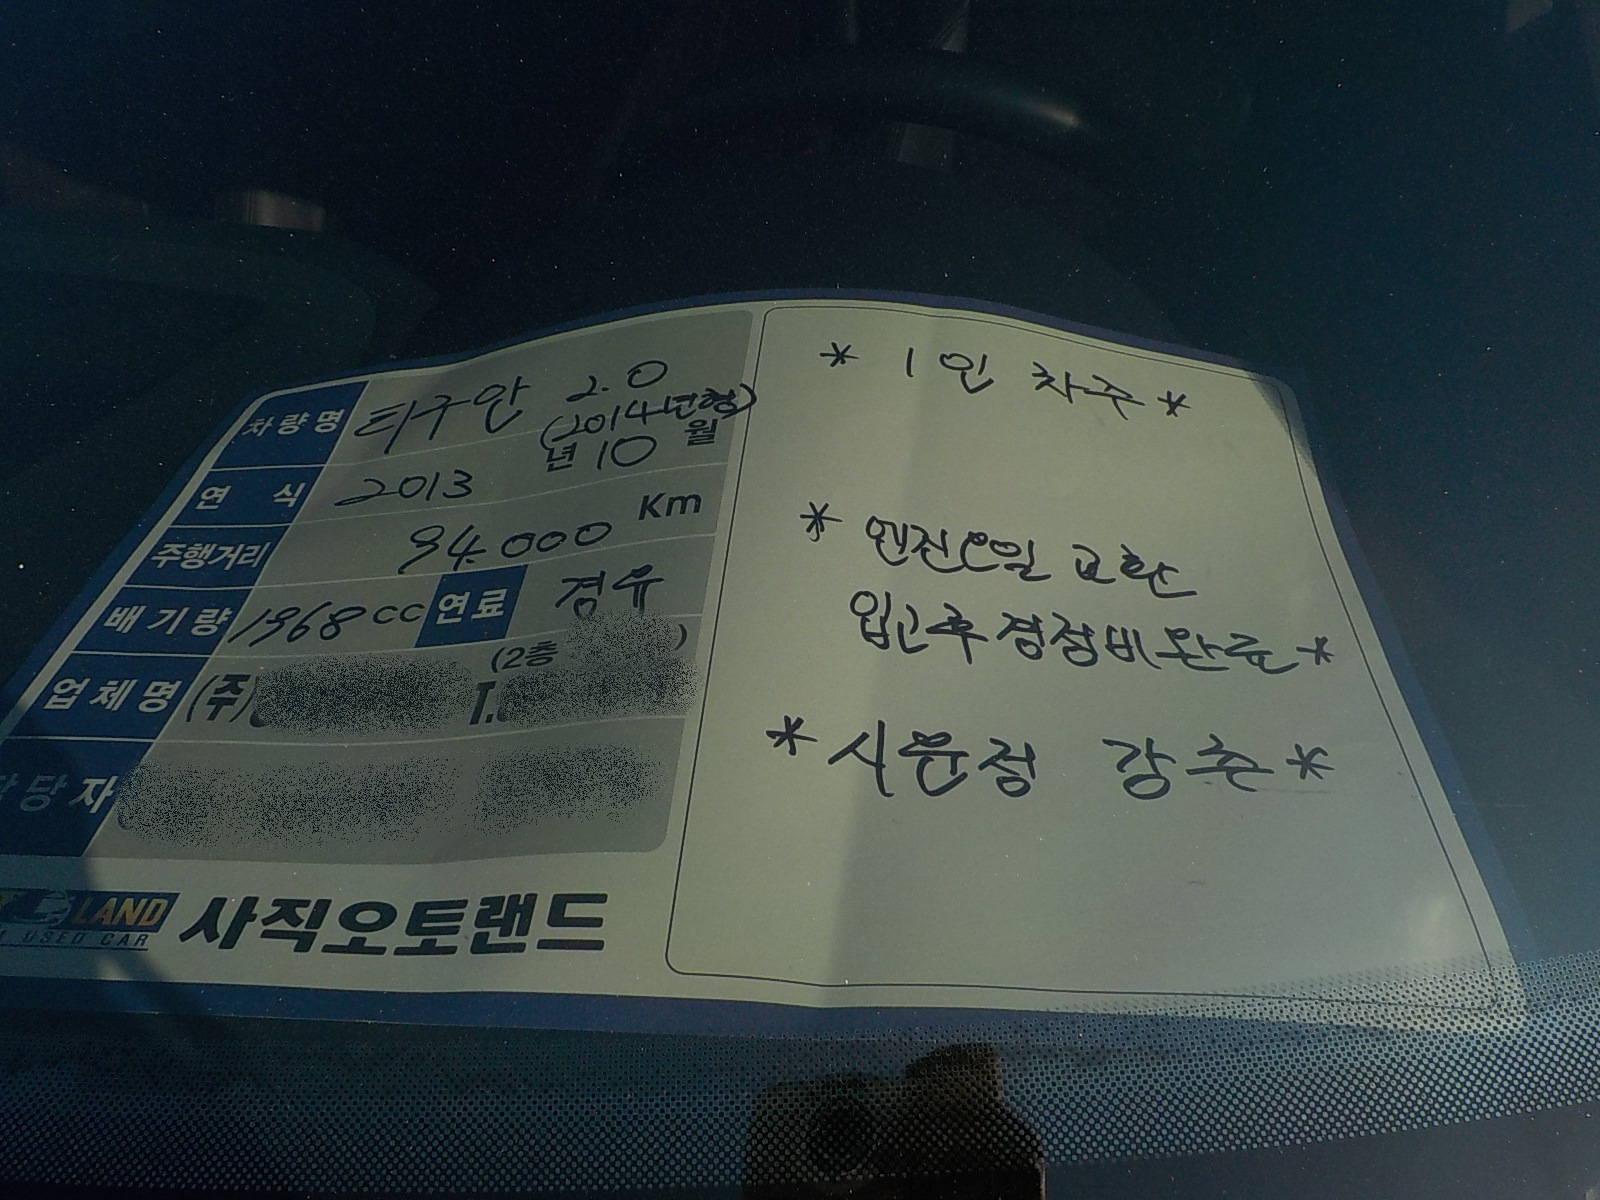 차량명 티구안 2.0
(2014년형)
연 식 2013 년 10 월
주행거리 94.000 Km
배기량 1968 cc 연료 경유
(2층 )
업체명 (주) T.
담당자
LAND
USED CAR
사직오토랜드
* 1인 차주 *
* 엔진오일 교환
입고후 경정비완료 *
* 시운정 강추 *